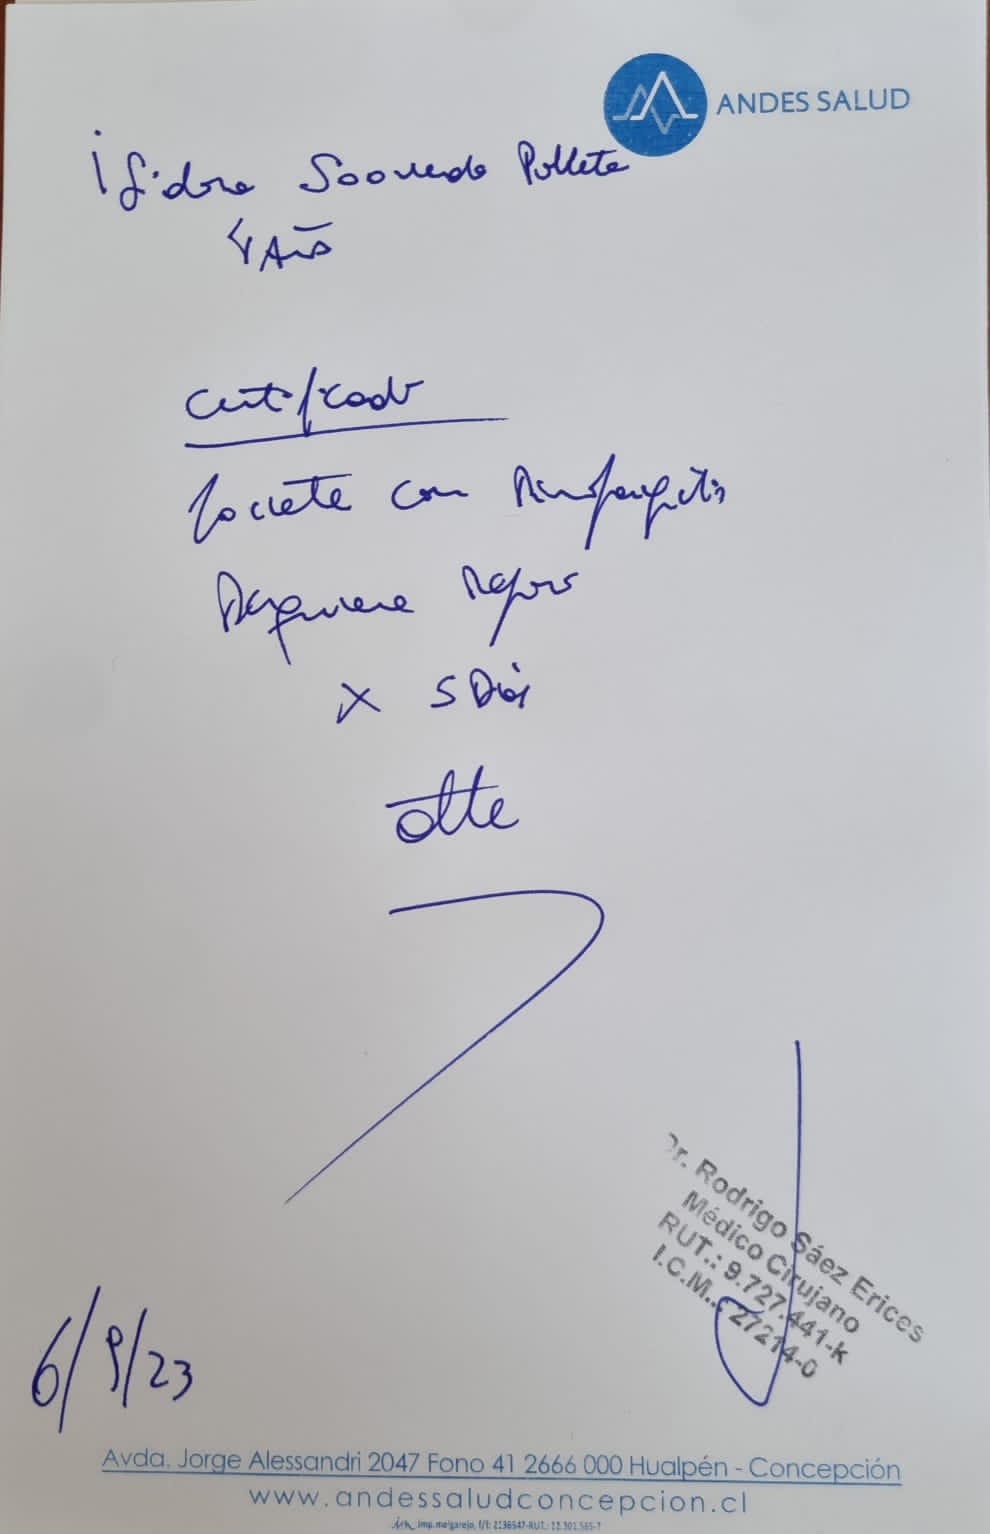 ANDES SALUD
Isidora Saavedra
4 Años
Certificado
Paciente con Rinofaringitis
Requiere Reposo
x 5 Días
Atte
Dr. Rodrigo Sáez Erices
Médico Cirujano
RUT.: 9.727.441-k
I.C.M.: 27214-0
6/9/23
Avda. Jorge Alessandri 2047 Fono 41 2666 000 Hualpén - Concepción
www.andessaludconcepcion.cl